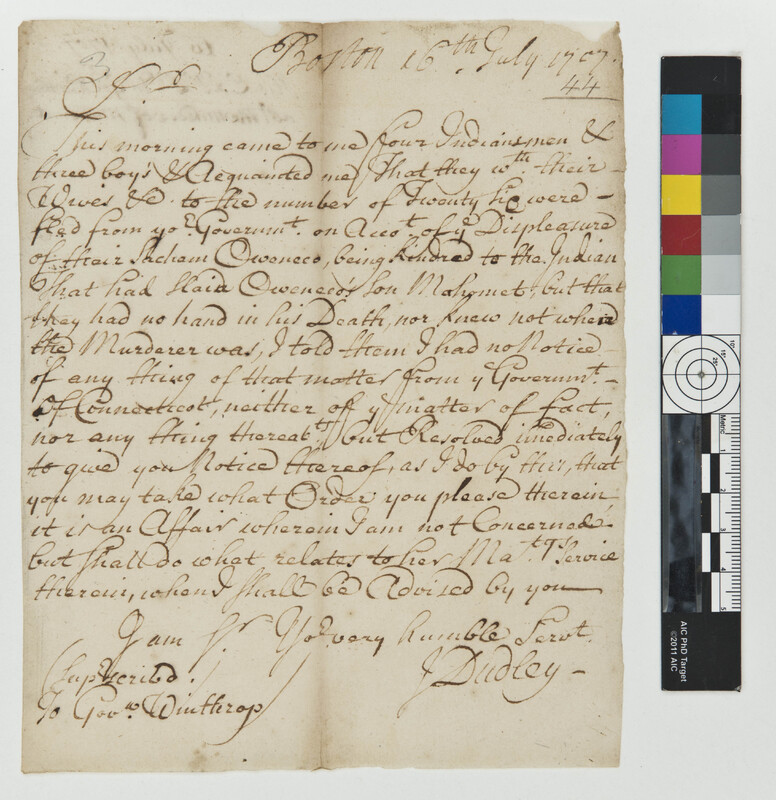 Boston 16th. July 1707.
44
Sr.
This morning came to me four Indiansmen &
three boys & Acquainted me That they wth. their
Wives &c. to the number of Twenty were
fled from yor. Governmt. on Accot. of ye Displeasure
of their Sachem Oweneco, being kindred to the Indian
That had slaid Oweneco's son Mahomet, but that
they had no hand in his Death, nor knew not where
the Murderer was, I told them I had no Notice
of any thing of that matter from ye Governmt.
of Connecticot, neither of ye matter of fact,
nor any thing thereat, but Resolved imediately
to give you Notice thereof, as I do by this, that
you may take what Order you please therein
it is an Affair wherein I am not Concerned
but shall do what relates to her Matys Service
therein, when I shall be Advised by you
I am Sr. Yor. very humble Servt.
J Dudley
Supscribd.
To Govr. Winthrop
AIC PhD Target
©2011 AIC
Metric
1
2
3
4
5